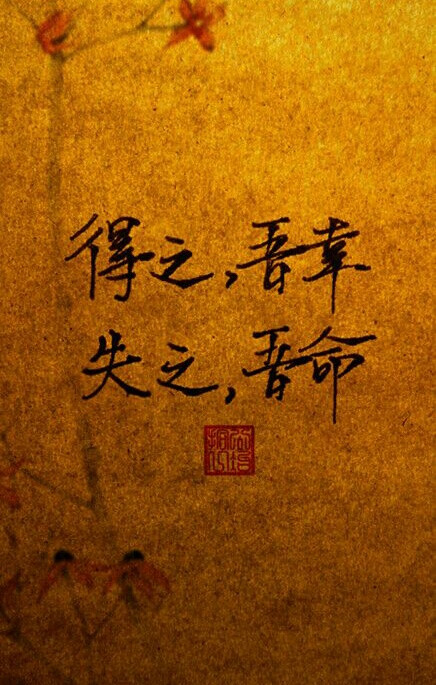 得之,吾幸
失之,吾命